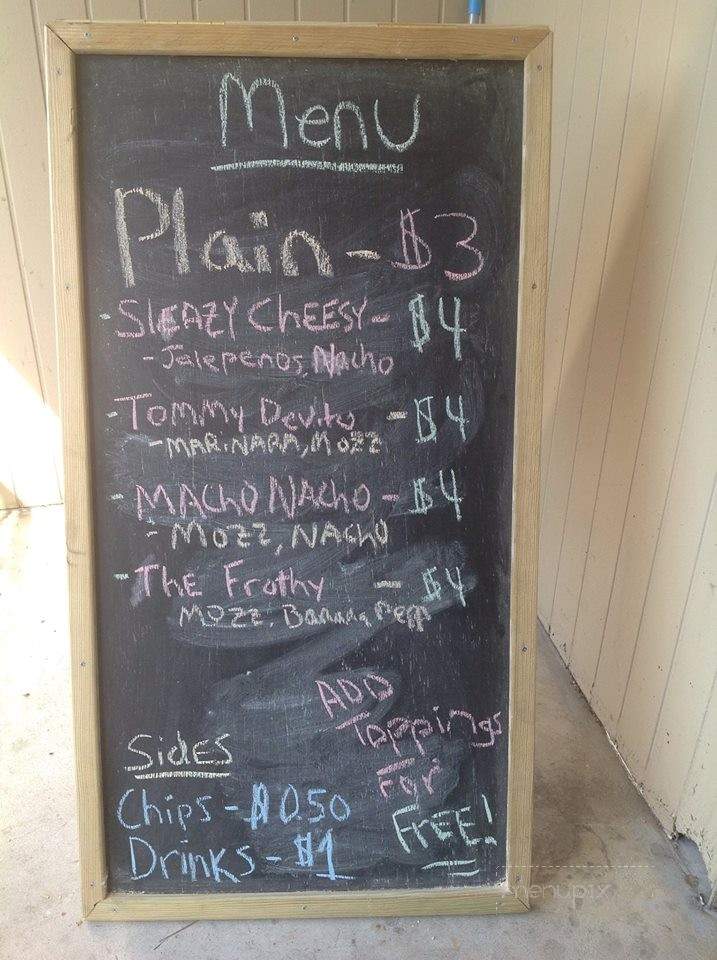 Menu
Plain - $3
- SLEAZY CHEESY - $4
- Jalepenos, Nacho
- Tommy Devito - $4
- MARINARA, MOZZ
- MACHO NACHO - $4
- MOZZ, NACHO
- THE Frothy - $4
MOZZ, Banana Pepp
ADD
Toppings
FOR
FREE!
Sides
Chips - $0.50
Drinks - $1
menupix